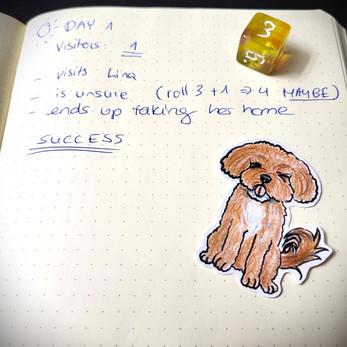 DAY 1
Visitors: 1
- visits Lina
- is unsure (roll 3 + 1 => 4 MAYBE)
- ends up taking her home
SUCCESS
3
6